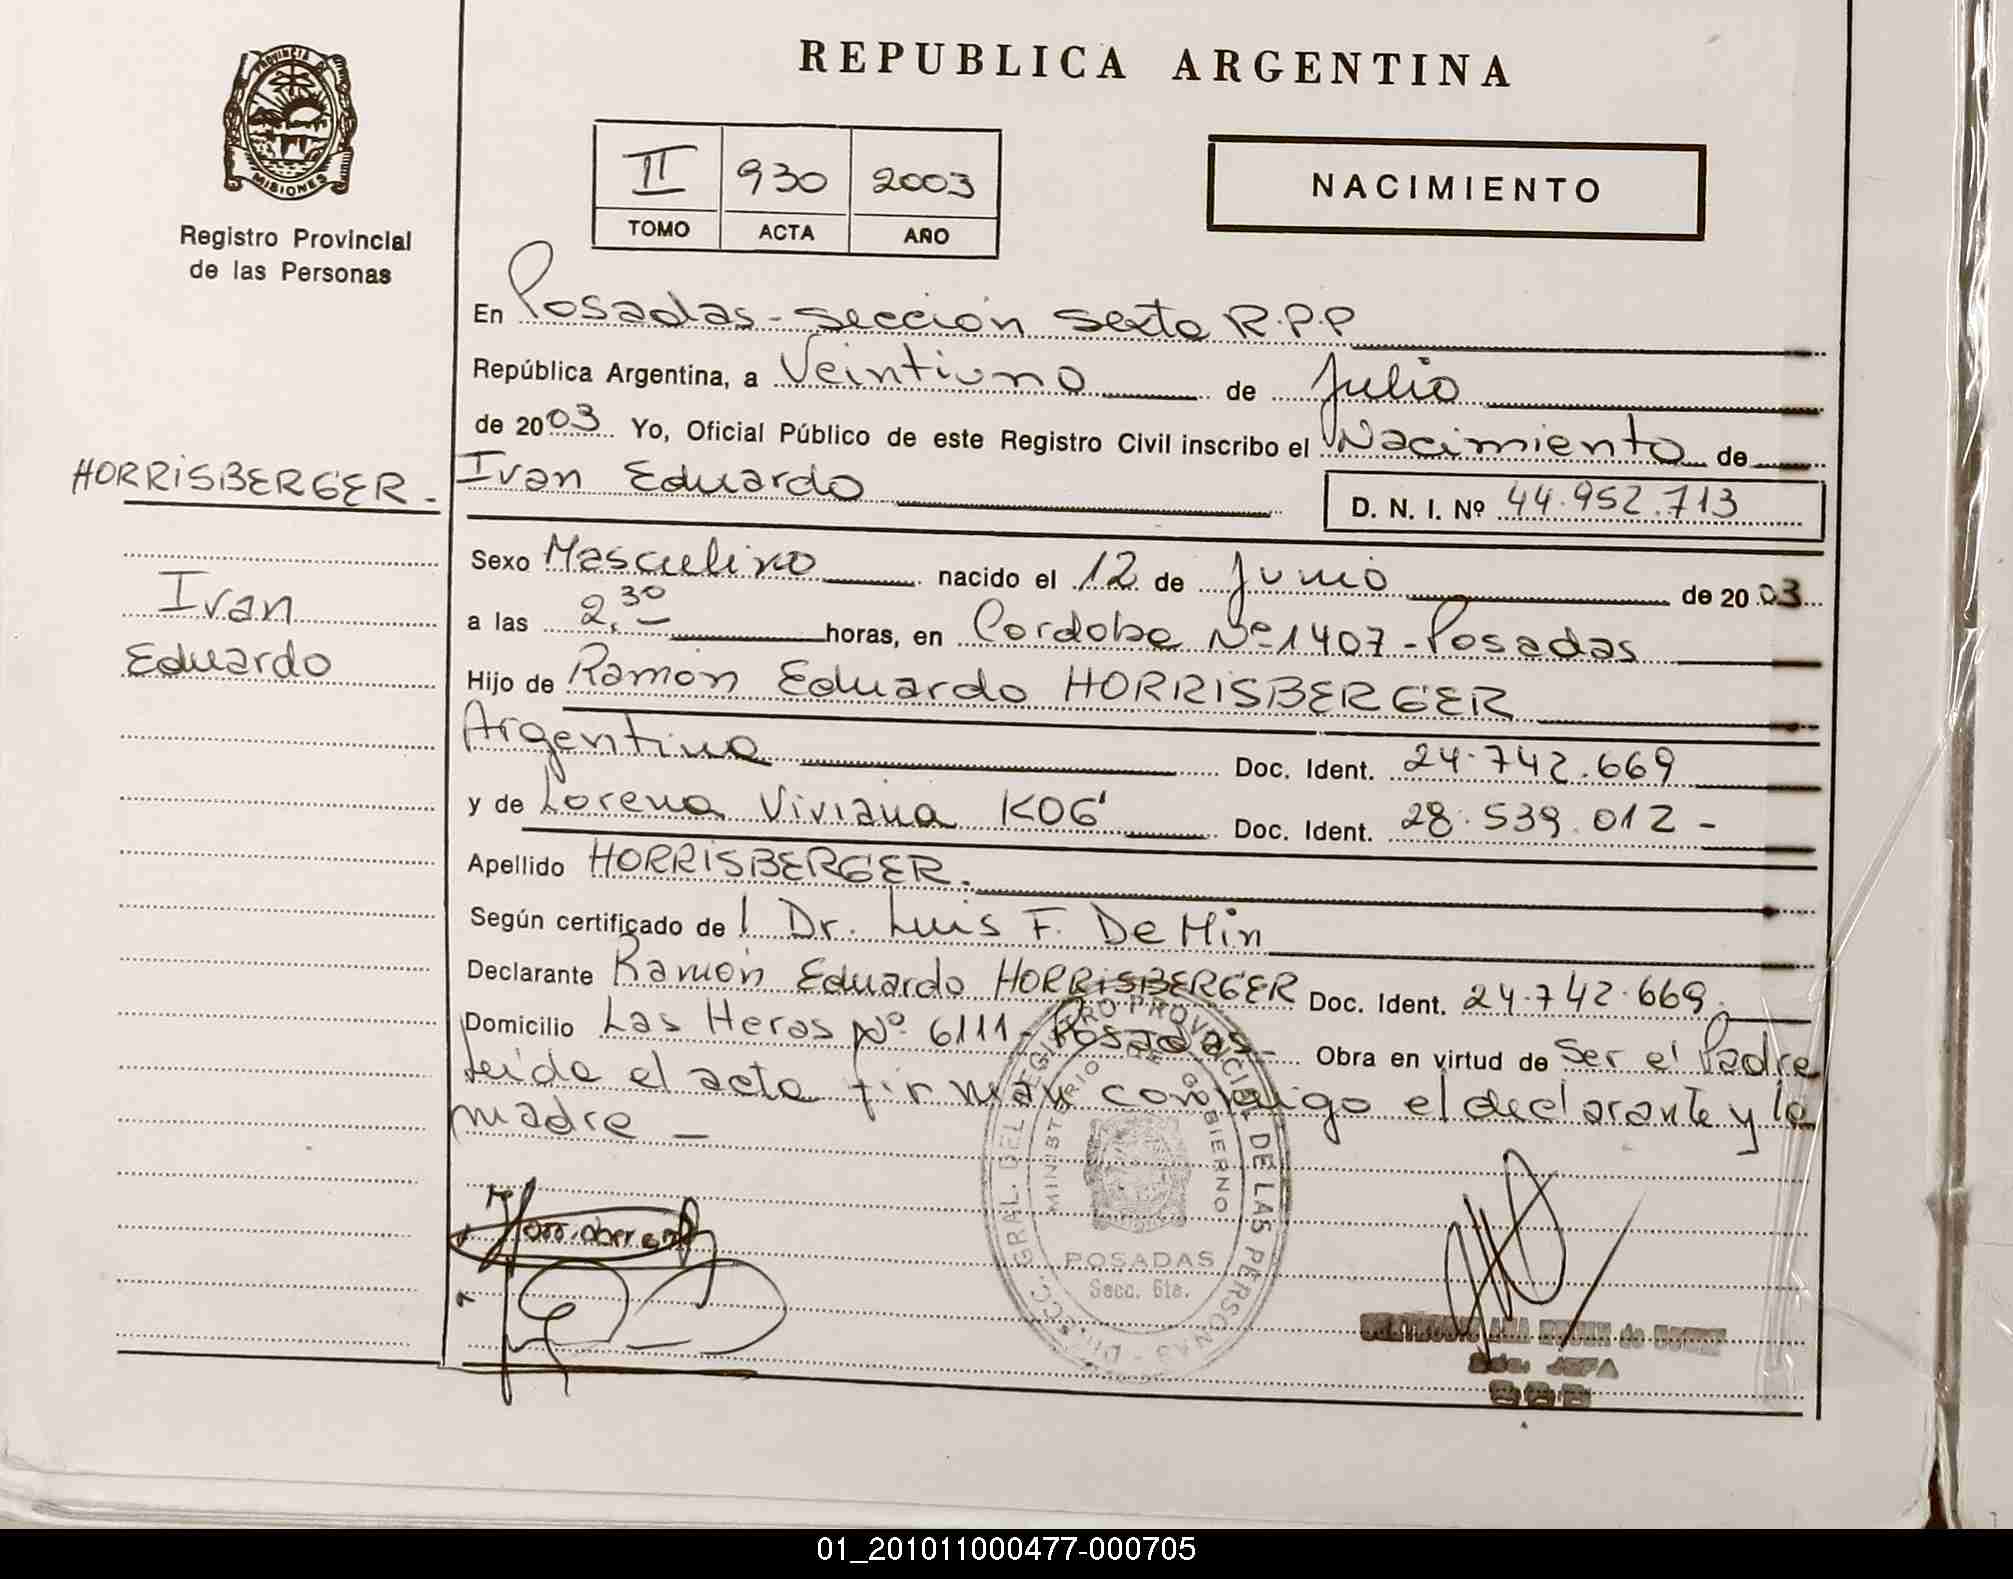 REPUBLICA ARGENTINA
PROVINCIA DE
MISIONES
Registro Provincial
de las Personas
II 930 2003
TOMO ACTA AÑO
NACIMIENTO
En Posadas - sección sexta R.P.P
República Argentina, a Veintiuno de Julio
de 2003 Yo, Oficial Público de este Registro Civil inscribo el Nacimiento de
HORRISBERGER -
Ivan Eduardo D. N. I. Nº 44.952.713
Sexo Masculino nacido el 12 de Junio de 2003
Ivan
a las 2,30 horas, en Cordoba Nº 1407 - Posadas
Eduardo
Hijo de Ramón Eduardo HORRISBERGER
Argentina Doc. Ident. 24.742.669
y de Lorena Viviana KOG' Doc. Ident. 28.539.012 -
Apellido HORRISBERGER.
Según certificado de l Dr. Luis F. De Min
Declarante Ramón Eduardo HORRISBERGER Doc. Ident. 24.742.669.
Domicilio Las Heras Nº 6111 - Posadas - Obra en virtud de Ser el Padre
Leida el acta firman conmigo el declarante y la
madre -
DIRECC. GRAL. DEL REGISTRO PROVINCIAL DE LAS PERSONAS
MINISTERIO DE GOBIERNO
POSADAS
Secc. 6ta.
ANA de
JEFA
01_201011000477-000705